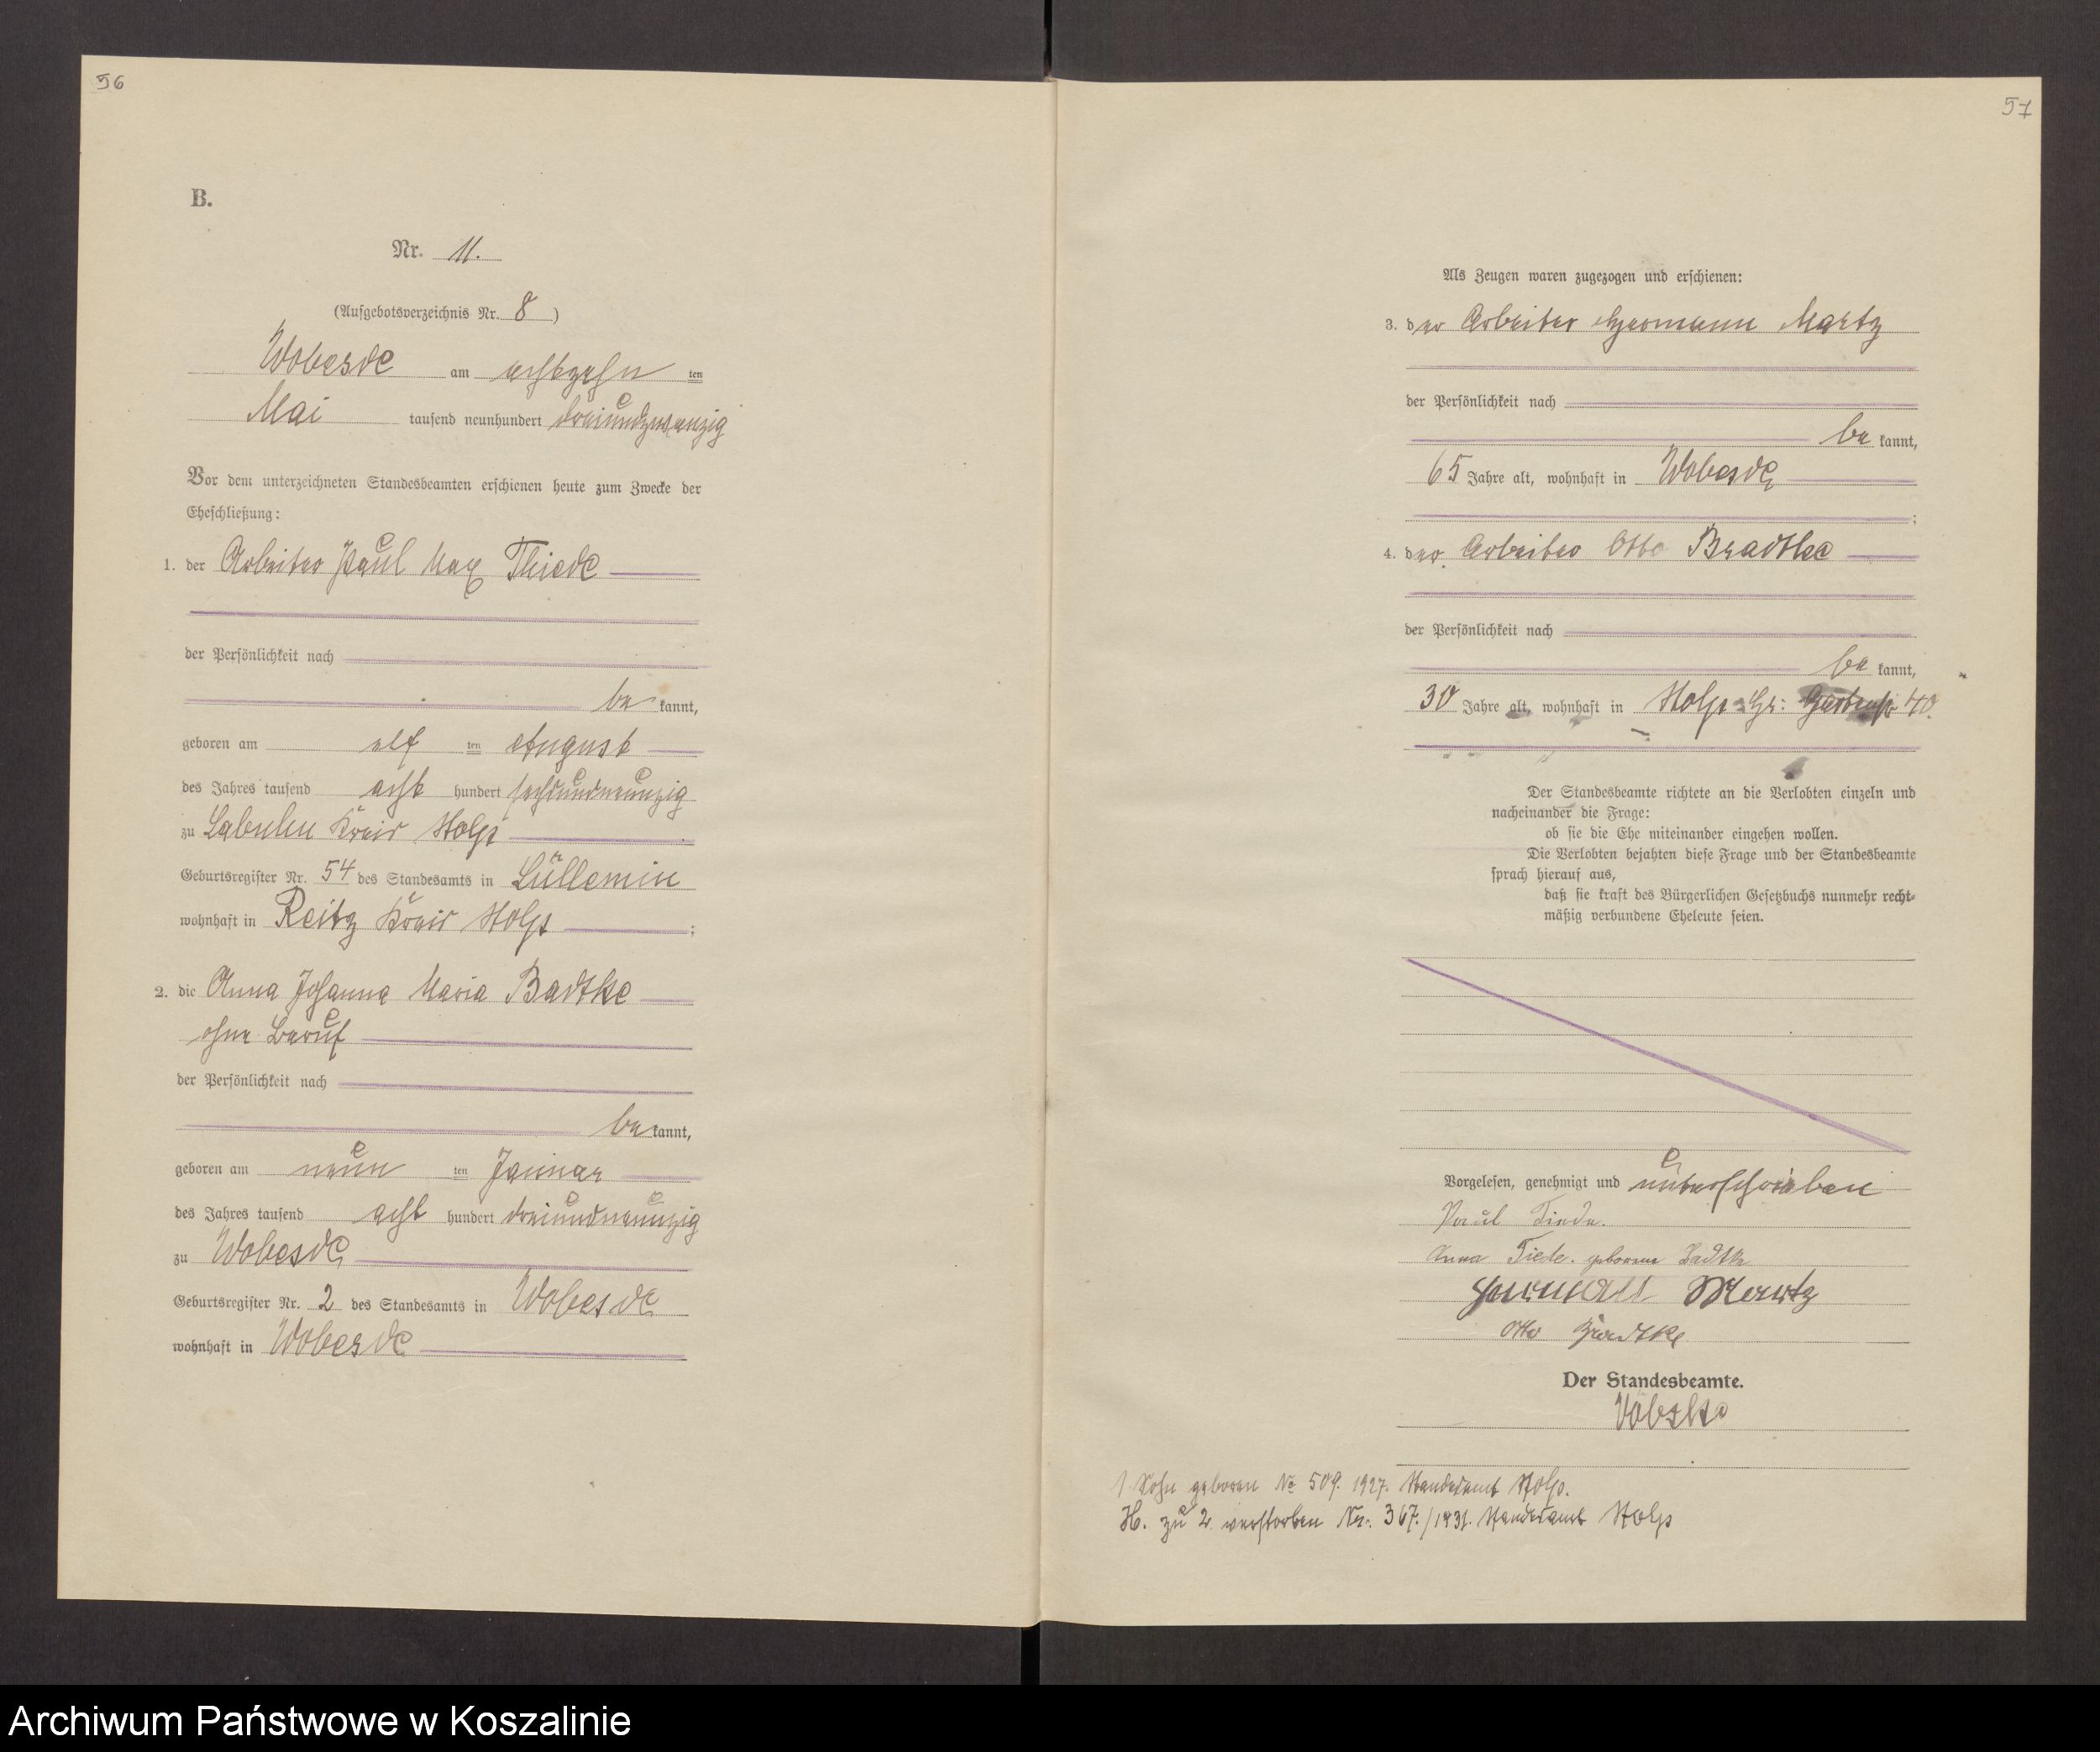 56
B.
Nr. 11.
(Aufgebotsverzeichnis Nr. 8)
Wobesde am achtzehn ten
Mai tausend neunhundert dreiundzwanzig
Vor dem unterzeichneten Standesbeamten erschienen heute zum Zwecke der
Eheschließung:
1. der Arbeiter Paul Max Thiede
der Persönlichkeit nach
be kannt,
geboren am elf ten August
des Jahres tausend acht hundert sechsundneunzig
zu Labuhn Kreis Stolp
Geburtsregister Nr. 54 des Standesamts in Lüllemin
wohnhaft in Reitz Kreis Stolp ;
2. die Anna Johanna Maria Badtke
ohne Beruf
der Persönlichkeit nach
be kannt,
geboren am neun ten Januar
des Jahres tausend acht hundert dreiundneunzig
zu Wobesde
Geburtsregister Nr. 2 des Standesamts in Wobesde
wohnhaft in Wobesde
57
Als Zeugen waren zugezogen und erschienen:
3. der Arbeiter Hermann Martz
der Persönlichkeit nach
be kannt,
65 Jahre alt, wohnhaft in Wobesde
;
4. der Arbeiter Otto Bradtke
der Persönlichkeit nach
be kannt,
30 Jahre alt, wohnhaft in Stolp Gartenstr 40.
Der Standesbeamte richtete an die Verlobten einzeln und
nacheinander die Frage:
ob sie die Ehe miteinander eingehen wollen.
Die Verlobten bejahten diese Frage und der Standesbeamte
sprach hierauf aus,
daß sie kraft des Bürgerlichen Gesetzbuchs nunmehr recht-
mäßig verbundene Eheleute seien.
Vorgelesen, genehmigt und unterschrieben
Paul Tiede.
Anna Tiede. geborene Badtke
Hermann Martz
Otto Bradtke
Der Standesbeamte.
1 Sohn geboren No 509. 1927. Standesamt Stolp.
H. zu 2. verstorben Nr. 367./1931. Standesamt Stolp
Archiwum Państwowe w Koszalinie